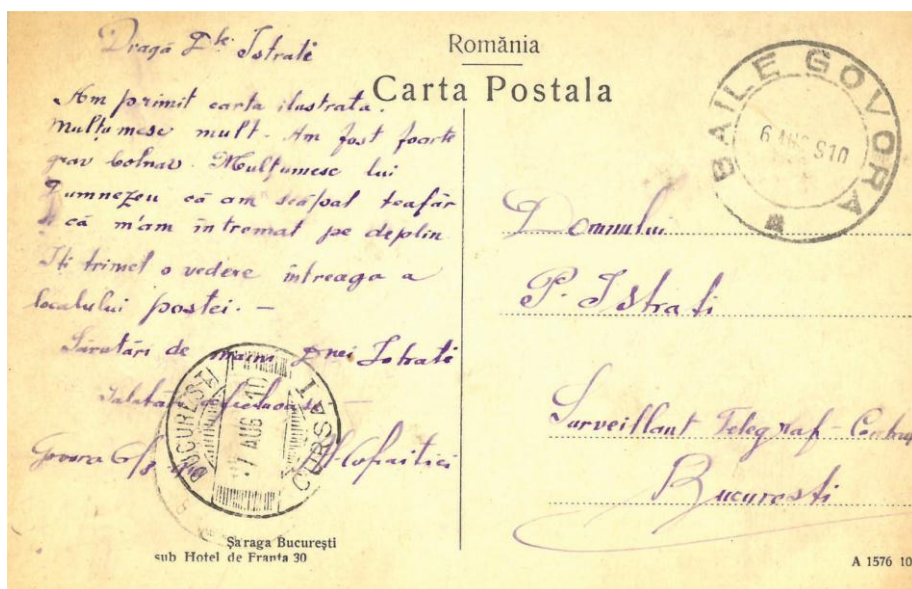 România
Carta Postala
Dragă Dle Istrati
Am primit carta ilustrata.
Mulțumesc mult. Am fost foarte
grav bolnav. Mulțumesc lui
Dumnezeu că am scăpat teafăr
că m'am întremat pe deplin
Iți trimet o vedere întreaga a
localului postei. —
Sărutări de maini Dnei Istrati
Govora 6/8
BAILE GOVORA
6 AUG 910
Domnului
P. Istrati
Surveillant Telegraf-
Bucuresti
BUCURESTI
7 AUG 10
CURSA I
Șaraga București
sub Hotel de Franta 30
A 1576 10